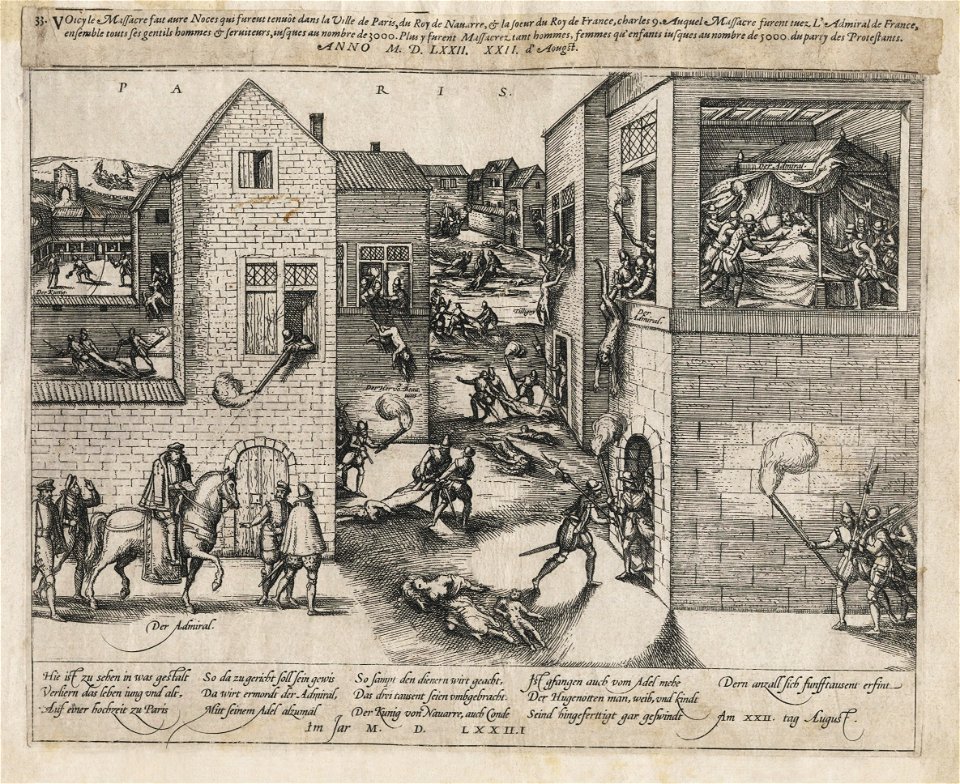 33. VOicy le Massacre fait aure Noces qui furent tenuöt dans la Ville de Paris, du Roy de Nauarre, & la soeur du Roy de France, charles 9. Auquel Massacre furent tuez L'Admiral de France,
ensemble touts ses gentils hommes & seruiteurs, iusques au nombre de 3000. Plus y furent Massacrez tant hommes, femmes qu'enfants iusques au nombre de 5000. du party des Protestants.
ANNO M. D. LXXII. XXII. d'Aougst.
PARIS.
Der Admiral.
Der Kunic
Tilligni
Der Admiral.
Der Her vō
Der Admiral.
Hie ist zu sehen in was gestalt
Verliern das leben iung vnd alt.
Auf einer hochzeit zu Paris
So da zugericht soll sein gewis
Da wirt ermordt der Admiral,
Mitt seinem Adel alzumal
So sampt den dienern wirt geacht,
Das drei tausent seien vmbgebracht.
Der Kunig von Nauarre, auch Conde
Ist gfangen auch vom Adel mehe
Der Hugenotten man, weib, vnd kindt
Seind hingefertigt gar geschwindt
Dern anzall sich funfftausent erfint
Am XXII. tag August.
Im Jar M. D. LXXII.I